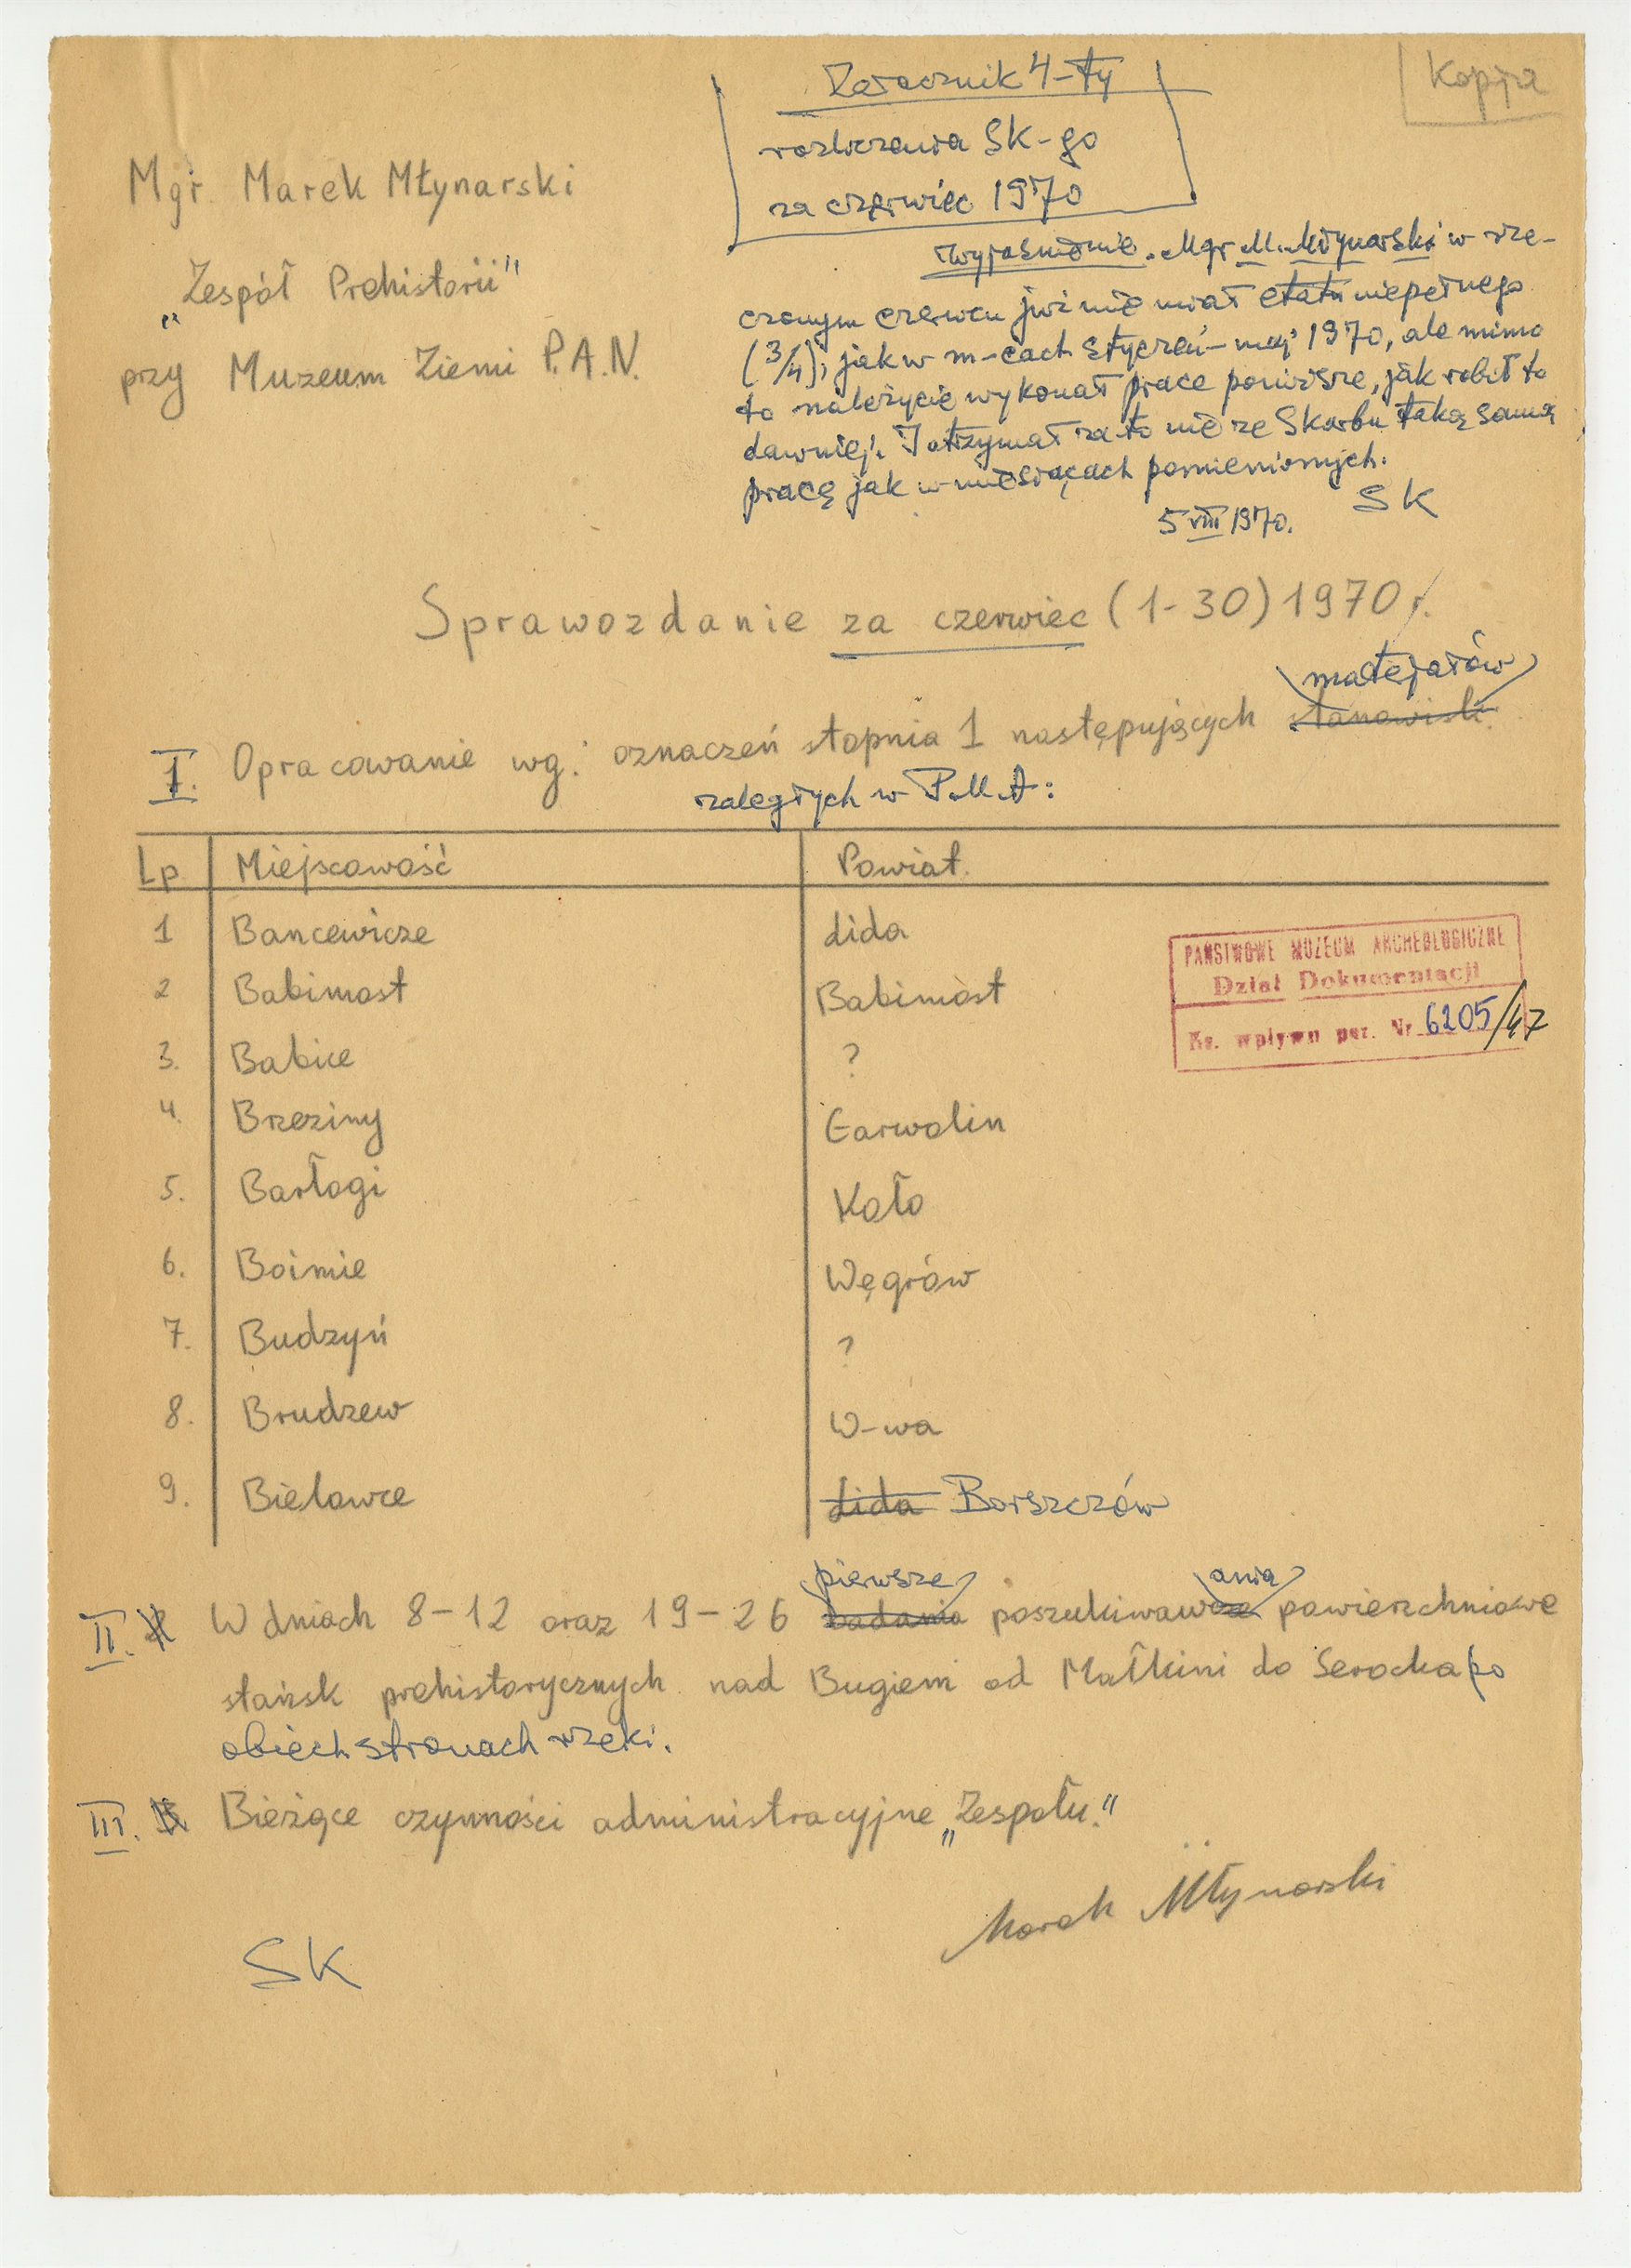 Kopja
Załącznik 4-ty
rozliczenia SK-go
za czerwiec 1970
Mgr. Marek Młynarski
„Zespół Prehistorii"
przy Muzeum Ziemi P.A.N.
Wyjaśnienie. Mgr M. Młynarski w rze-
czonym czerwcu już nie miał etatu niepełnego
(3/4), jak w m-cach styczeń-maj 1970, ale mimo
to należycie wykonał prace poniższe, jak robił to
dawniej. I otrzymał za-to nie ze Skarbu taką samą
pracę jak w miesiącach pomienionych.
SK
5 VIII 1970.
Sprawozdanie za czerwiec (1-30) 1970 r.
I. Opracowanie wg. oznaczeń stopnia 1 następujących stanowisk materjałów
zaległych w P.M.A:
Lp Miejscowość Powiat.
1 Bancewicze Lida
2 Babimost Babimost
3. Babice ?
4. Brzeziny Garwolin
5. Barłogi Koło
6. Boimie Węgrów
7. Budzyń ?
8. Brudzew W-wa
9. Bielawce Lida Borszczów
PAŃSTWOWE MUZEUM ARCHEOLOGICZNE
Dział Dokumentacji
Ks. wpływu poz. Nr 6205/47
II. W dniach 8-12 oraz 19-26 badania pierwsze poszukiwawcze ania powierzchniowe
stańsk prehistorycznych nad Bugiem od Małkini do Serocka po
obiech stronach rzeki.
III. Bieżące czynności administracyjne „Zespołu."
Marek Młynarski
SK